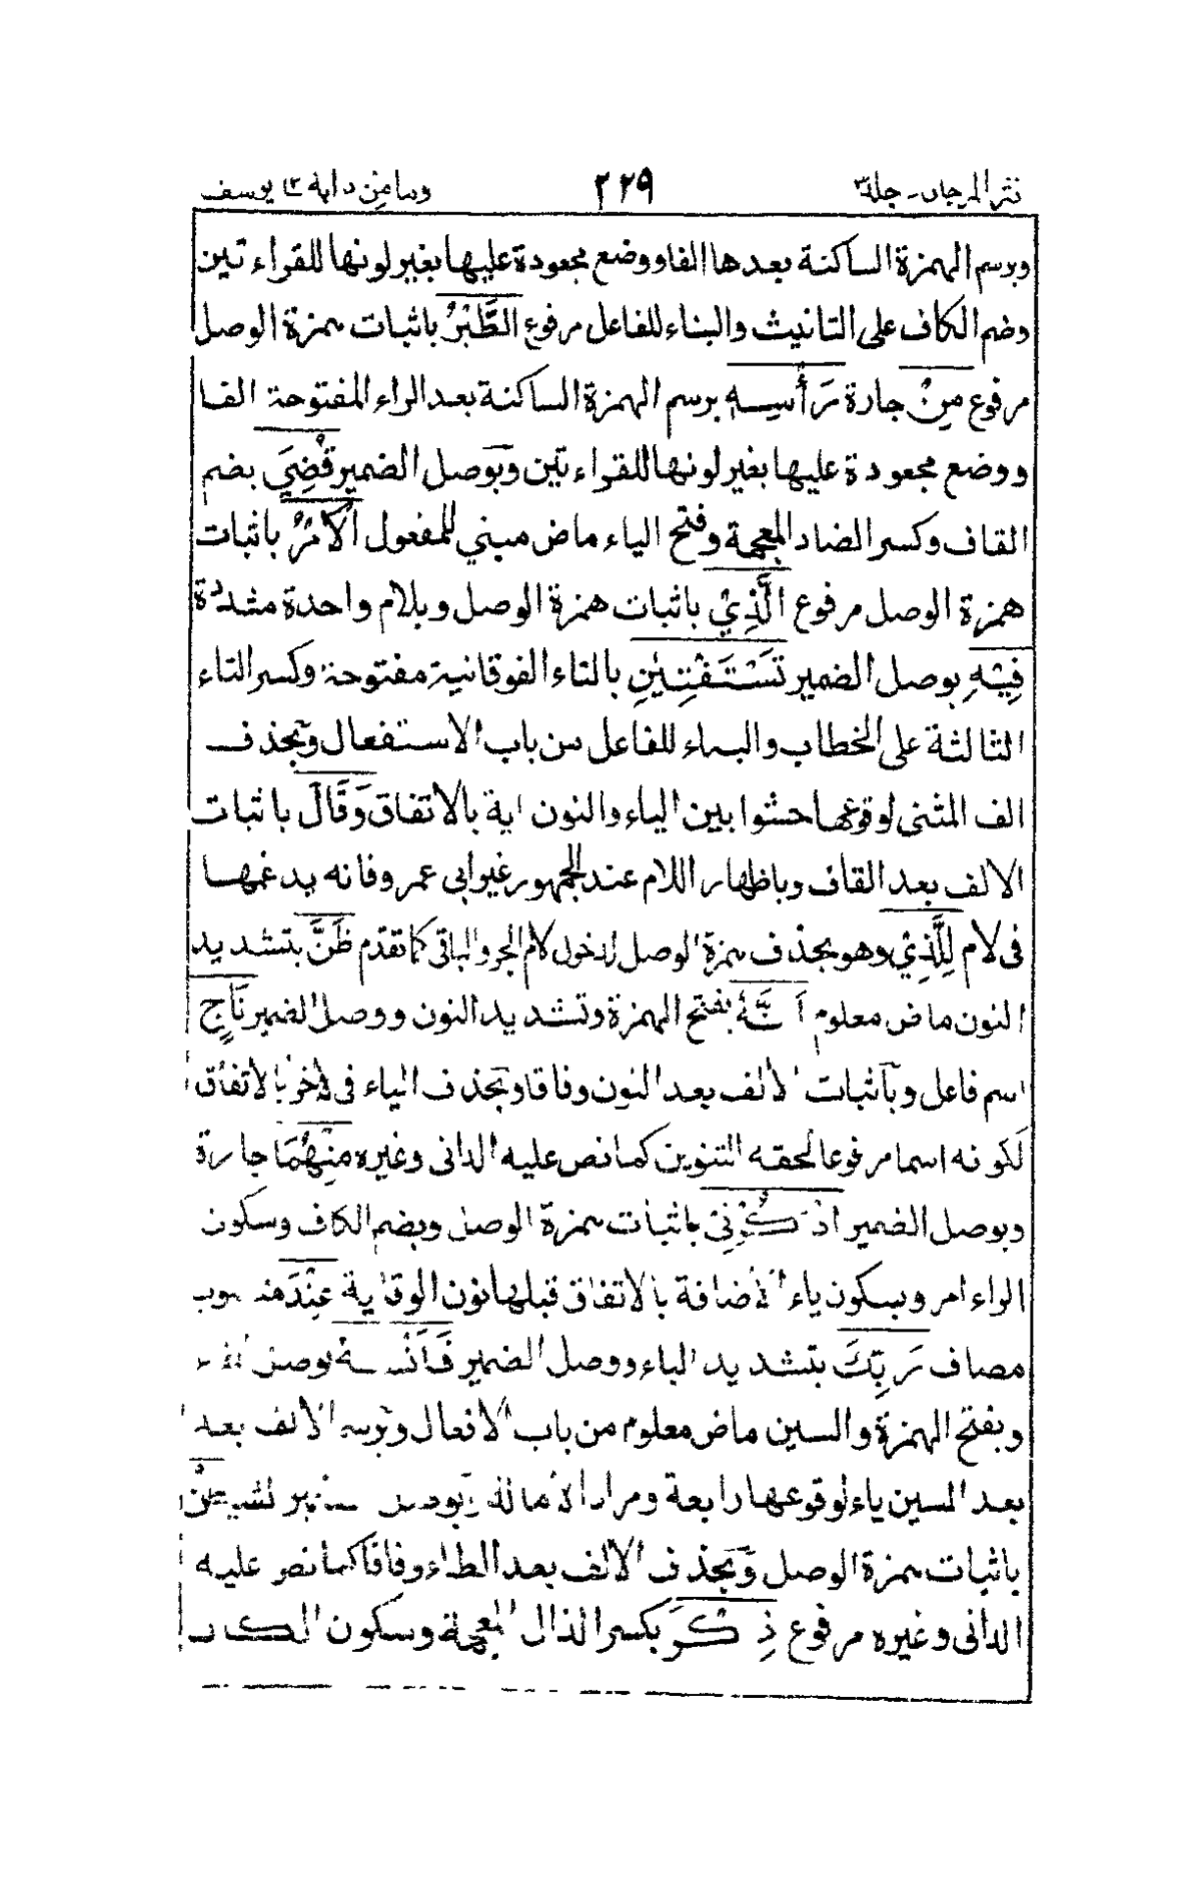 نثر المرجان - جلد ٣ ٢٢٩ وما من دابة ١٢ يوسف
وبرسم الهمزة الساكنة بعدها الفا ووضع مجعودة عليها بغير لونها للقراءتين
وضم الكاف على التانيث والبناء للفاعل مرفوع الطَّيْرُ باثبات همزة الوصل
مرفوع مِنْ جارة رَأْسِهِ برسم الهمزة الساكنة بعد الراء المفتوحة الفا
ووضع مجعودة عليها بغير لونها للقراءتين وبوصل الضمير قُضِيَ بضم
القاف وكسر الضاد المعجمة وفتح الياء ماض مبني للمفعول الْاَمْرُ باثبات
همزة الوصل مرفوع الَّذِيْ باثبات همزة الوصل وبلام واحدة مشددة
فِيْهِ بوصل الضمير تَسْتَفْتِيٰنِ بالتاء الفوقانية مفتوحة وكسر التاء
الثالثة على الخطاب والبناء للفاعل من باب الاستفعال وبحذف
الف المثنى لوقوعها حشوا بين الياء والنون اية بالاتفاق وَقَالَ باثبات
الالف بعد القاف وباظهار اللام عند الجمهور غير ابى عمرو فانه يدغمها
فى لام لِلَّذِيْ وهو بحذف همزة الوصل لدخول لام الجر والباقى كما تقدم ظَنَّ بتشديد
النون ماض معلوم اَنَّهٗ بفتح الهمزة وتشديد النون ووصل الضمير نَاجٍ
اسم فاعل وبآثبات الالف بعد النون وفاقا وبحذف الياء فى الاخر بالاتفاق
لكونه اسما مرفوعا لحقه التنوين كما نص عليه الدانى وغيره مِنْهُمَا جارة
وبوصل الضمير اذْكُرْنِيْ باثبات همزة الوصل وبضم الكاف وسكون
الراء امر وبسكون ياء الاضافة بالاتفاق قبلها نون الوقاية عِنْدَ
مضاف رَبِّكَ بتشديد الباء ووصل الضمير فَاَنْسٰهُ بوصل
وبفتح الهمزة والسين ماض معلوم من باب الافعال وبرسم الالف بعد
بعد السين ياء لوقوعها رابعة ومراد الامالة وبوصل الضمير الشَّيْطٰنُ
باثبات همزة الوصل وبحذف الالف بعد الطاء وفاقا كما نص عليه
الدانى وغيره مرفوع ذِكْرَ بكسر الذال المعجمة وسكون الكاف